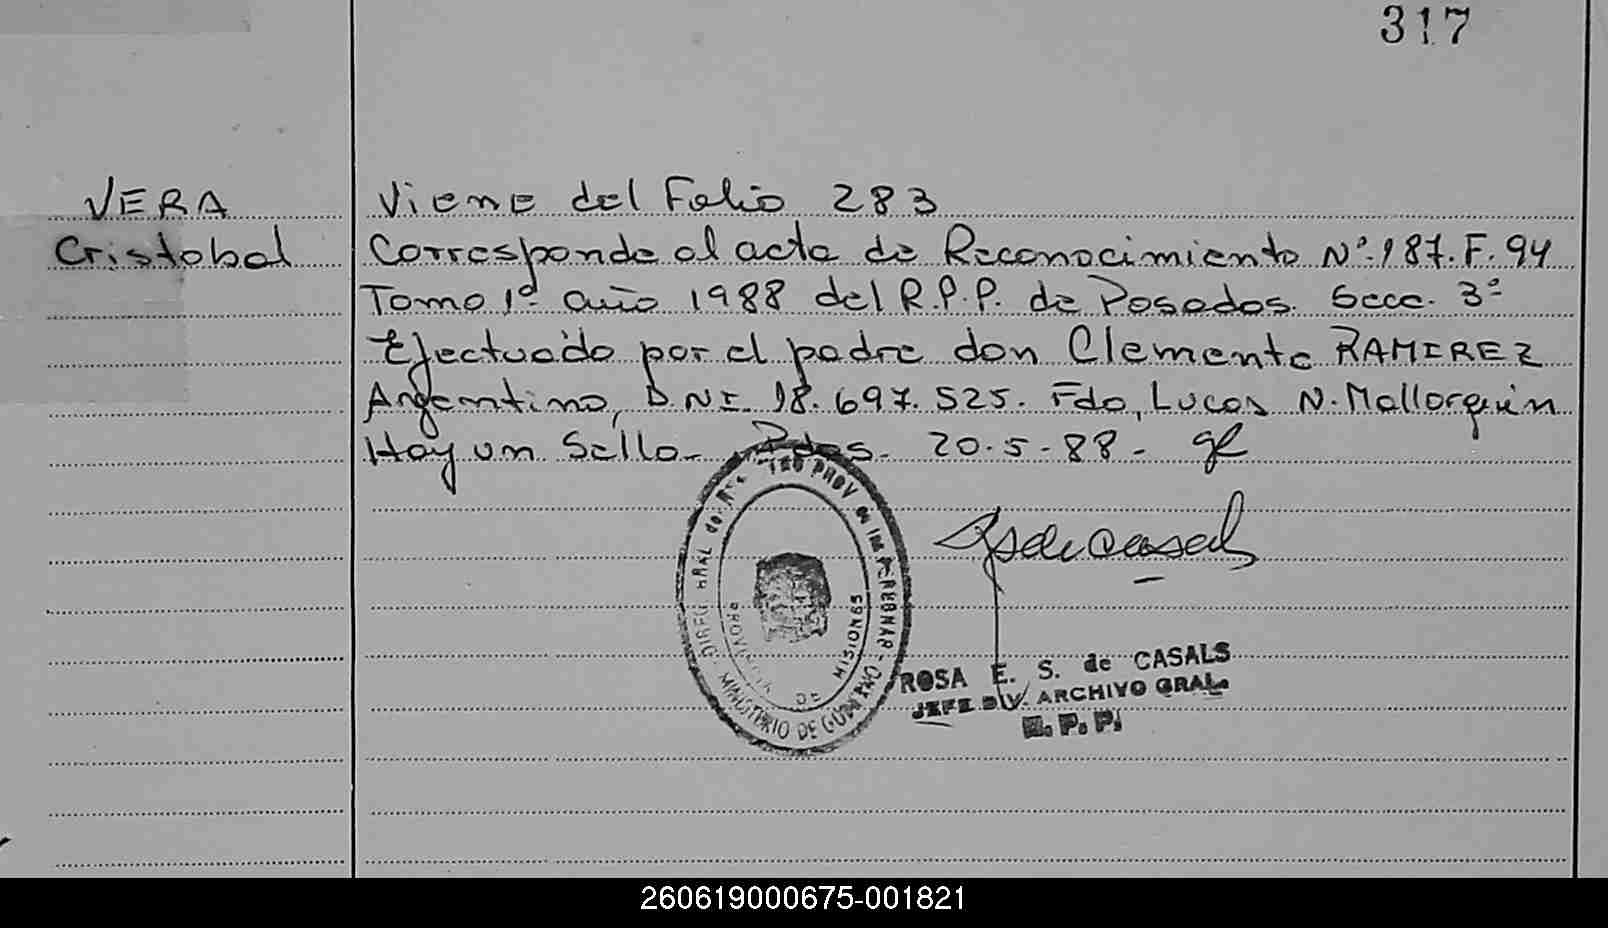 317
VERA
Cristobal
Viene del Folio 283
Corresponde al acta de Reconocimiento Nº.187.F.94
Tomo 1º año 1988 del R.P.P. de Posadas. Secc. 3ª
Efectuado por el padre don Clemente RAMIREZ
Argentino, D.N.I. 18.697.525. Fdo, Lucas N. Mallorquin
Hay un Sello. Pdas. 20.5.88-
PROV de las PER
PROVINCIA DE MISIONES
MINISTERIO DE GOBIERNO
ROSA E. S. de CASALS
JEFE DIV. ARCHIVO GRAL.
R. P. P.
260619000675-001821